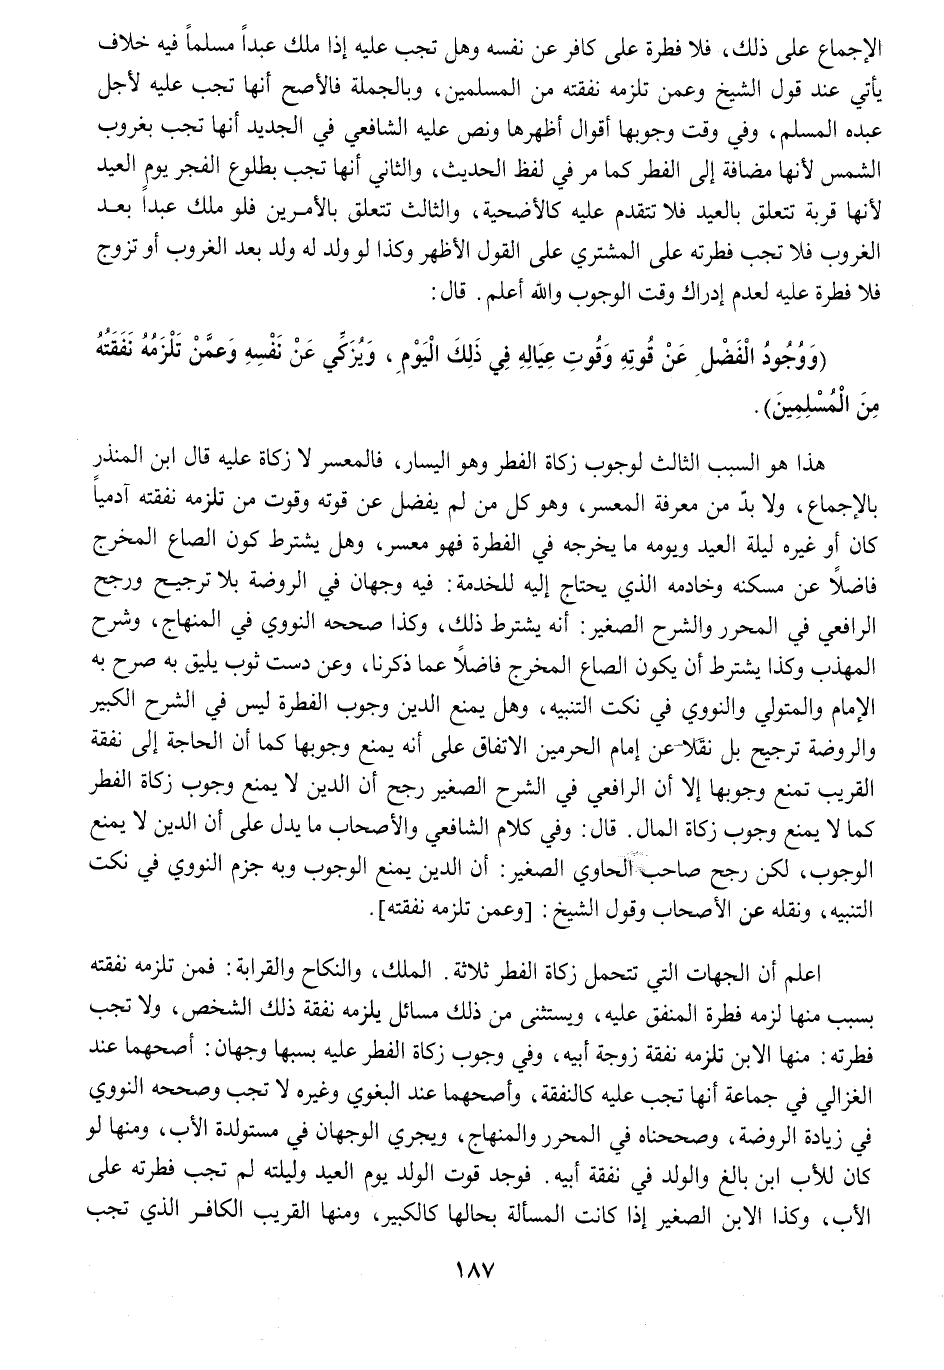 الإجماع على ذلك، فلا فطرة على كافر عن نفسه وهل تجب عليه إذا ملك عبداً مسلماً فيه خلاف
يأتي عند قول الشيخ وعمن تلزمه نفقته من المسلمين، وبالجملة فالأصح أنها تجب عليه لأجل
عبده المسلم، وفي وقت وجوبها أقوال أظهرها ونص عليه الشافعي في الجديد أنها تجب بغروب
الشمس لأنها مضافة إلى الفطر كما مر في لفظ الحديث، والثاني أنها تجب بطلوع الفجر يوم العيد
لأنها قربة تتعلق بالعيد فلا تتقدم عليه كالأضحية، والثالث تتعلق بالأمرين فلو ملك عبداً بعد
الغروب فلا تجب فطرته على المشتري على القول الأظهر وكذا لو ولد له ولد بعد الغروب أو تزوج
فلا فطرة عليه لعدم إدراك وقت الوجوب والله أعلم. قال:
(وَوُجُودُ الْفَضْلِ عَنْ قُوتِهِ وَقُوتِ عِيَالِهِ فِي ذَلِكَ الْيَوْمِ، وَيُزَكِّي عَنْ نَفْسِهِ وَعمَّنْ تَلْزَمُهُ نَفَقَتُهُ
مِنَ الْمُسْلِمِينَ).
هذا هو السبب الثالث لوجوب زكاة الفطر وهو اليسار، فالمعسر لا زكاة عليه قال ابن المنذر
بالإجماع، ولا بدّ من معرفة المعسر، وهو كل من لم يفضل عن قوته وقوت من تلزمه نفقته آدمياً
كان أو غيره ليلة العيد ويومه ما يخرجه في الفطرة فهو معسر، وهل يشترط كون الصاع المخرج
فاضلاً عن مسكنه وخادمه الذي يحتاج إليه للخدمة: فيه وجهان في الروضة بلا ترجيح ورجح
الرافعي في المحرر والشرح الصغير: أنه يشترط ذلك، وكذا صححه النووي في المنهاج، وشرح
المهذب وكذا يشترط أن يكون الصاع المخرج فاضلاً عما ذكرنا، وعن دست ثوب يليق به صرح به
الإمام والمتولي والنووي في نكت التنبيه، وهل يمنع الدين وجوب الفطرة ليس في الشرح الكبير
والروضة ترجيح بل نقلا عن إمام الحرمين الاتفاق على أنه يمنع وجوبها كما أن الحاجة إلى نفقة
القريب تمنع وجوبها إلا أن الرافعي في الشرح الصغير رجح أن الدين لا يمنع وجوب زكاة الفطر
كما لا يمنع وجوب زكاة المال. قال: وفي كلام الشافعي والأصحاب ما يدل على أن الدين لا يمنع
الوجوب، لكن رجح صاحب الحاوي الصغير: أن الدين يمنع الوجوب وبه جزم النووي في نكت
التنبيه، ونقله عن الأصحاب وقول الشيخ: [وعمن تلزمه نفقته].
اعلم أن الجهات التي تتحمل زكاة الفطر ثلاثة. الملك، والنكاح والقرابة: فمن تلزمه نفقته
بسبب منها لزمه فطرة المنفق عليه، ويستثنى من ذلك مسائل يلزمه نفقة ذلك الشخص، ولا تجب
فطرته: منها الابن تلزمه نفقة زوجة أبيه، وفي وجوب زكاة الفطر عليه بسبها وجهان: أصحهما عند
الغزالي في جماعة أنها تجب عليه كالنفقة، وأصحهما عند البغوي وغيره لا تجب وصححه النووي
في زيادة الروضة، وصححناه في المحرر والمنهاج، ويجري الوجهان في مستولدة الأب، ومنها لو
كان للأب ابن بالغ والولد في نفقة أبيه. فوجد قوت الولد يوم العيد وليلته لم تجب فطرته على
الأب، وكذا الابن الصغير إذا كانت المسألة بحالها كالكبير، ومنها القريب الكافر الذي تجب
١٨٧